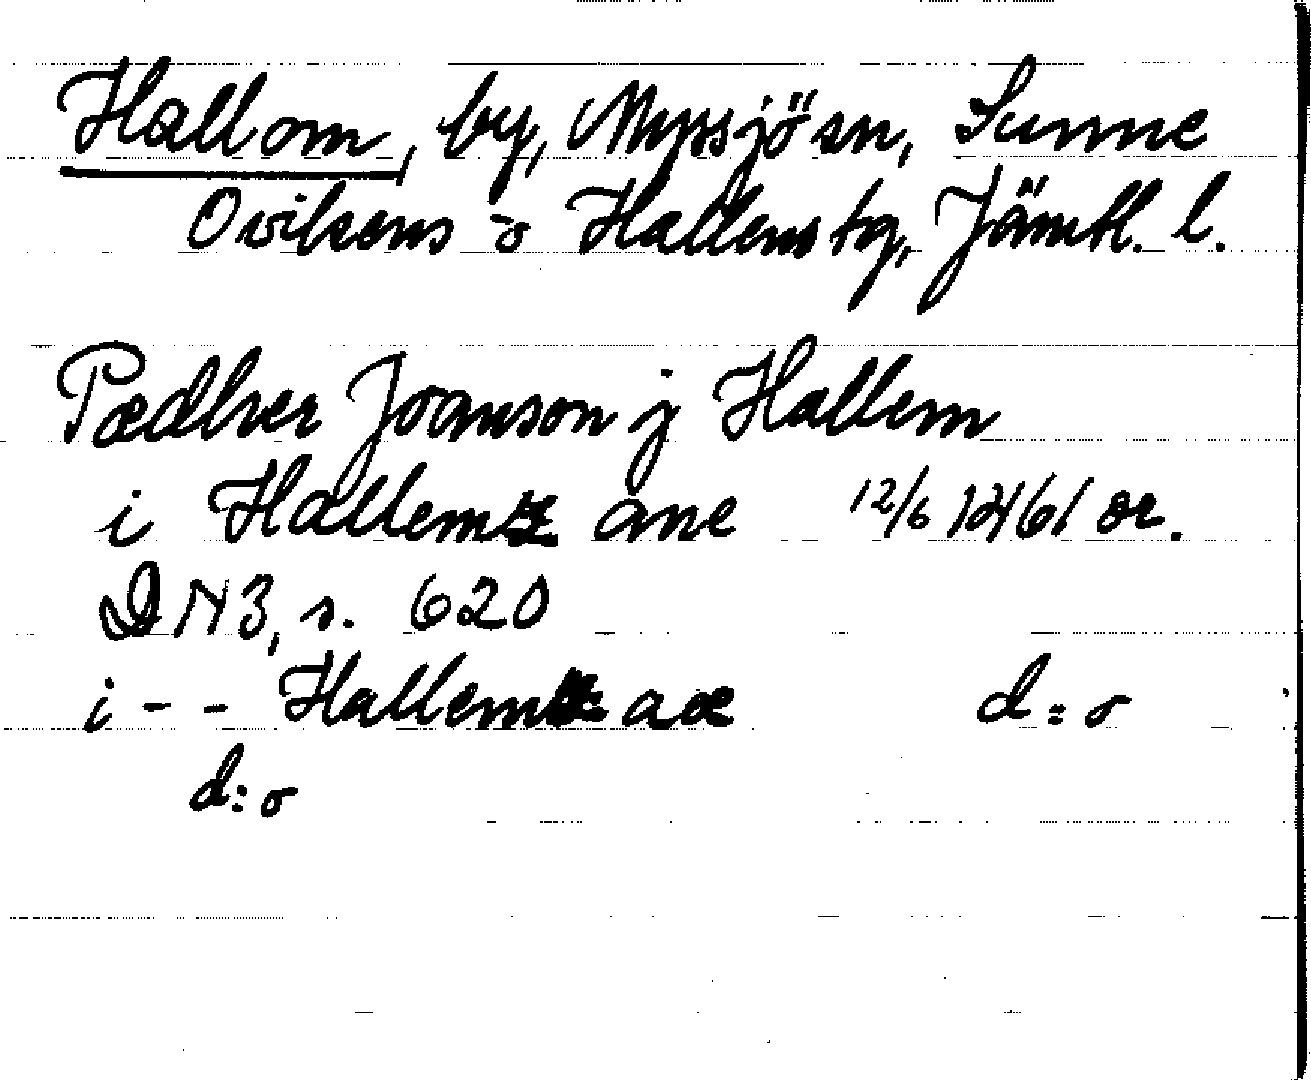 Hallom, by, Myssjö sn, Sunne
Ovikens o Hallens tg, Jämtl. l.
Pædher Joanson j Hallem
i Hallem ane 12/6 1461 or.
DN 3, s. 620
i - - Hallem aa d:o
d:o